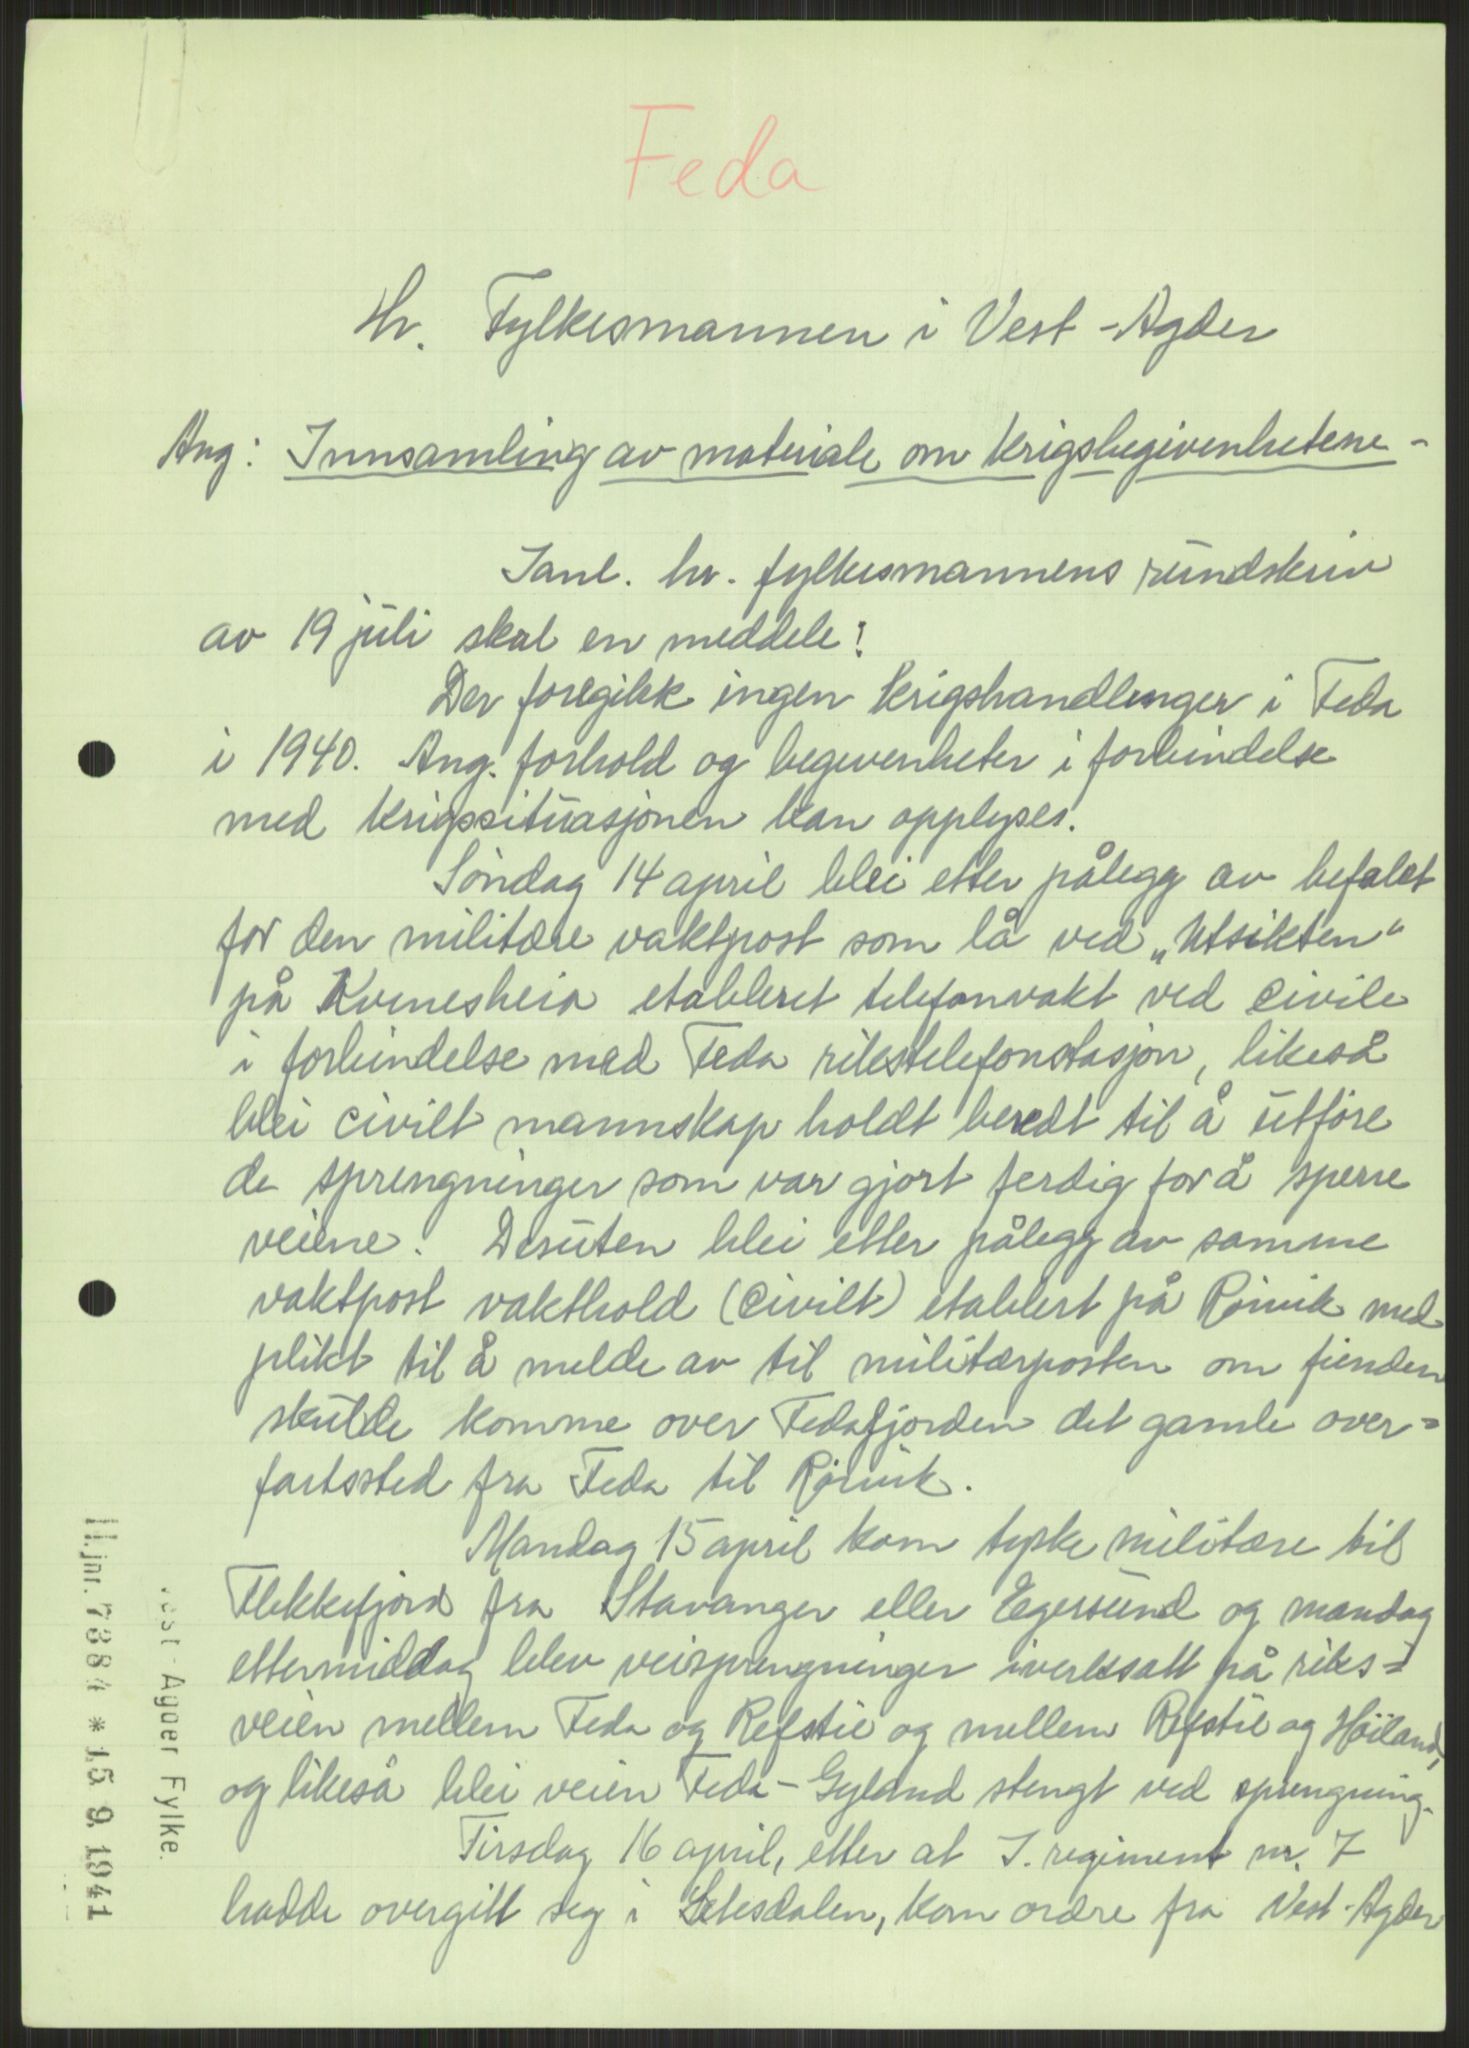 Feda
Hr. Fylkesmannen i Vest-Agder
Ang: Innsamling av materiale om krigsbegivenhetene -
Ianl. hr. fylkesmannens rundskriv
av 19 juli skal en meddele:
Der foregikk ingen krigshandlinger i Feda
i 1940. Ang. forhold og begivenheter i forbindelse
med krigssituasjonen kan opplyses.
Söndag 14 april blei etter pålegg av befalet
for den militære vaktpost som lå ved „Utsikten"
på Kvinesheia etableret telefonvakt ved civile
i forbindelse med Feda rikstelefonstasjon, likeså
blei civilt mannskap holdt beredt til å utföre
de sprengninger som var gjort ferdig for å sperre
veiene. Desuten blei etter pålegg av samme
vaktpost vakthold (civilt) etablert på Rörvik med
plikt til å melde av til militærposten om fienden
skulde komme over Fedafjorden det gamle over=
fartssted fra Feda til Rörvik.
Mandag 15 april kom tyske militære til
Flekkefjord fra Stavanger eller Egersund og mandag
ettermiddag blev veisprengninger iverksatt på riks=
veien mellem Feda og Refstie og mellem Refstie og Höiland,
og likeså blei veien Feda-Gyland stengt ved sprengning.
Tirsdag 16 april, etter at I. regiment nr. 7
hadde overgitt seg i Setesdalen, kom ordre fra Vest-Agder
Vest-Agder Fylke.
II.jnr. 7884 * 15 9. 1941